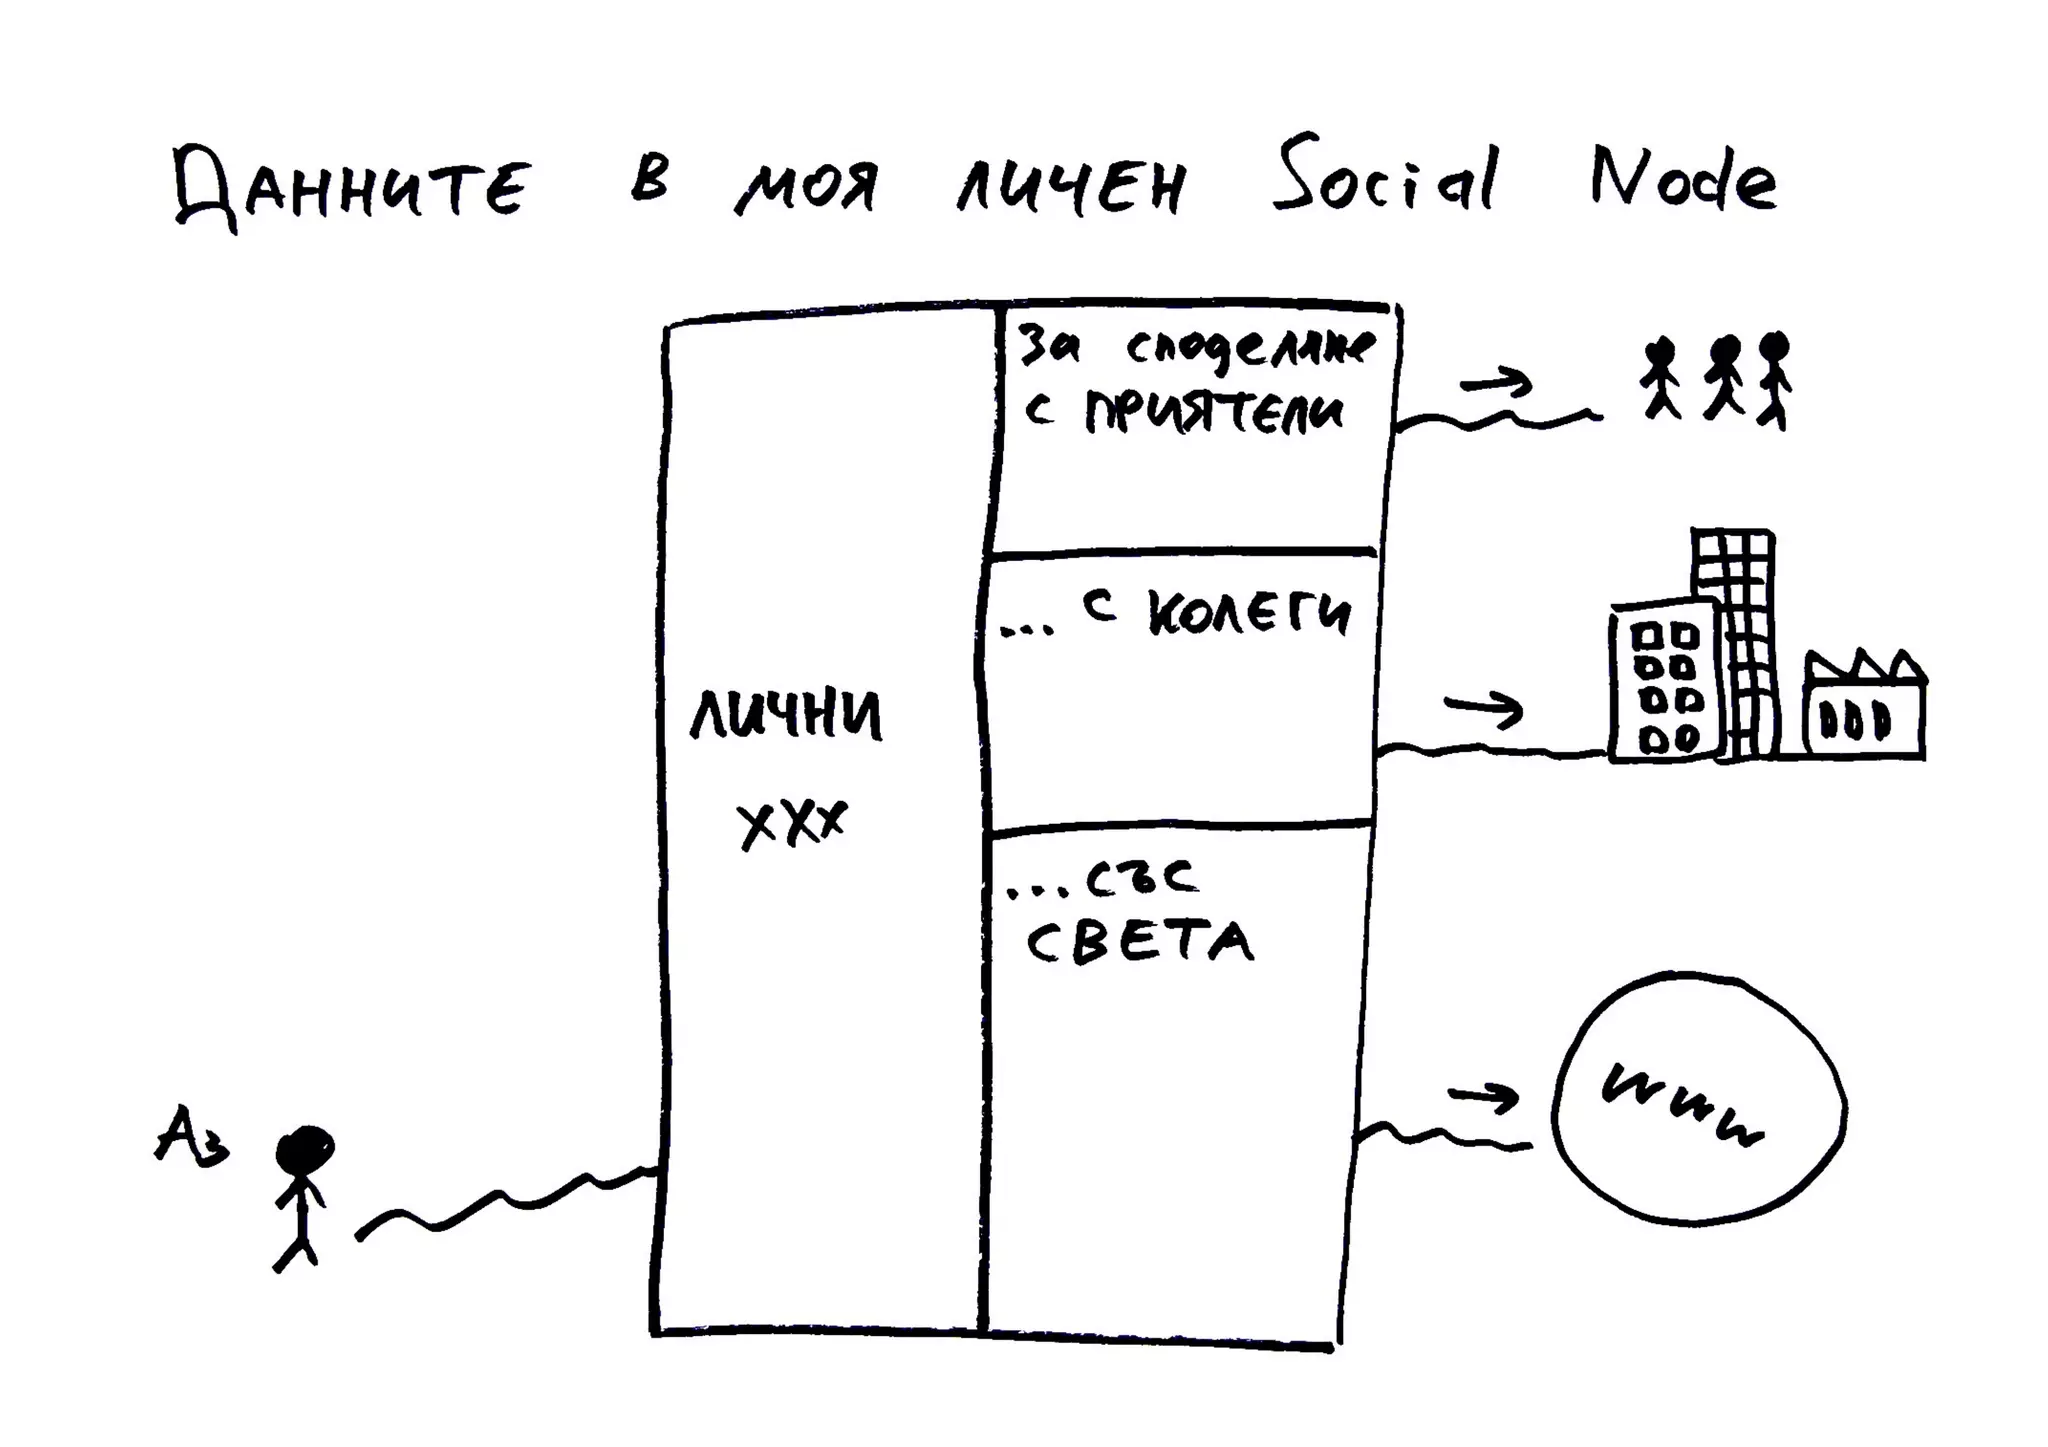 Данните в моя личен Social Node
За споделяне
с приятели
... с колеги
лични
xxx
... със
света
Аз
www